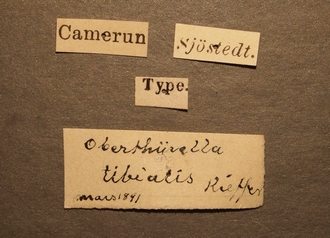 Camerun
Sjöstedt.
Type.
Oberthürella
tibialis Kieffer
mars 1891